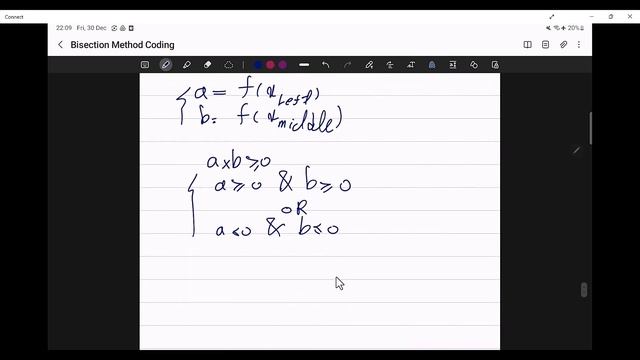 Connect
22:09 Fri, 30 Dec
20%
Bisection Method Coding
a = f(x_Left)
b = f(x_middle)
a×b ≥ 0
a ≥ 0 & b ≥ 0
OR
a ≤ 0 & b ≤ 0